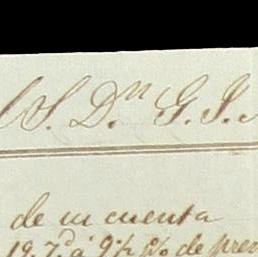 S. Dⁿ. G. I.
de su cuenta
19.7.º á 9½ p% de prem